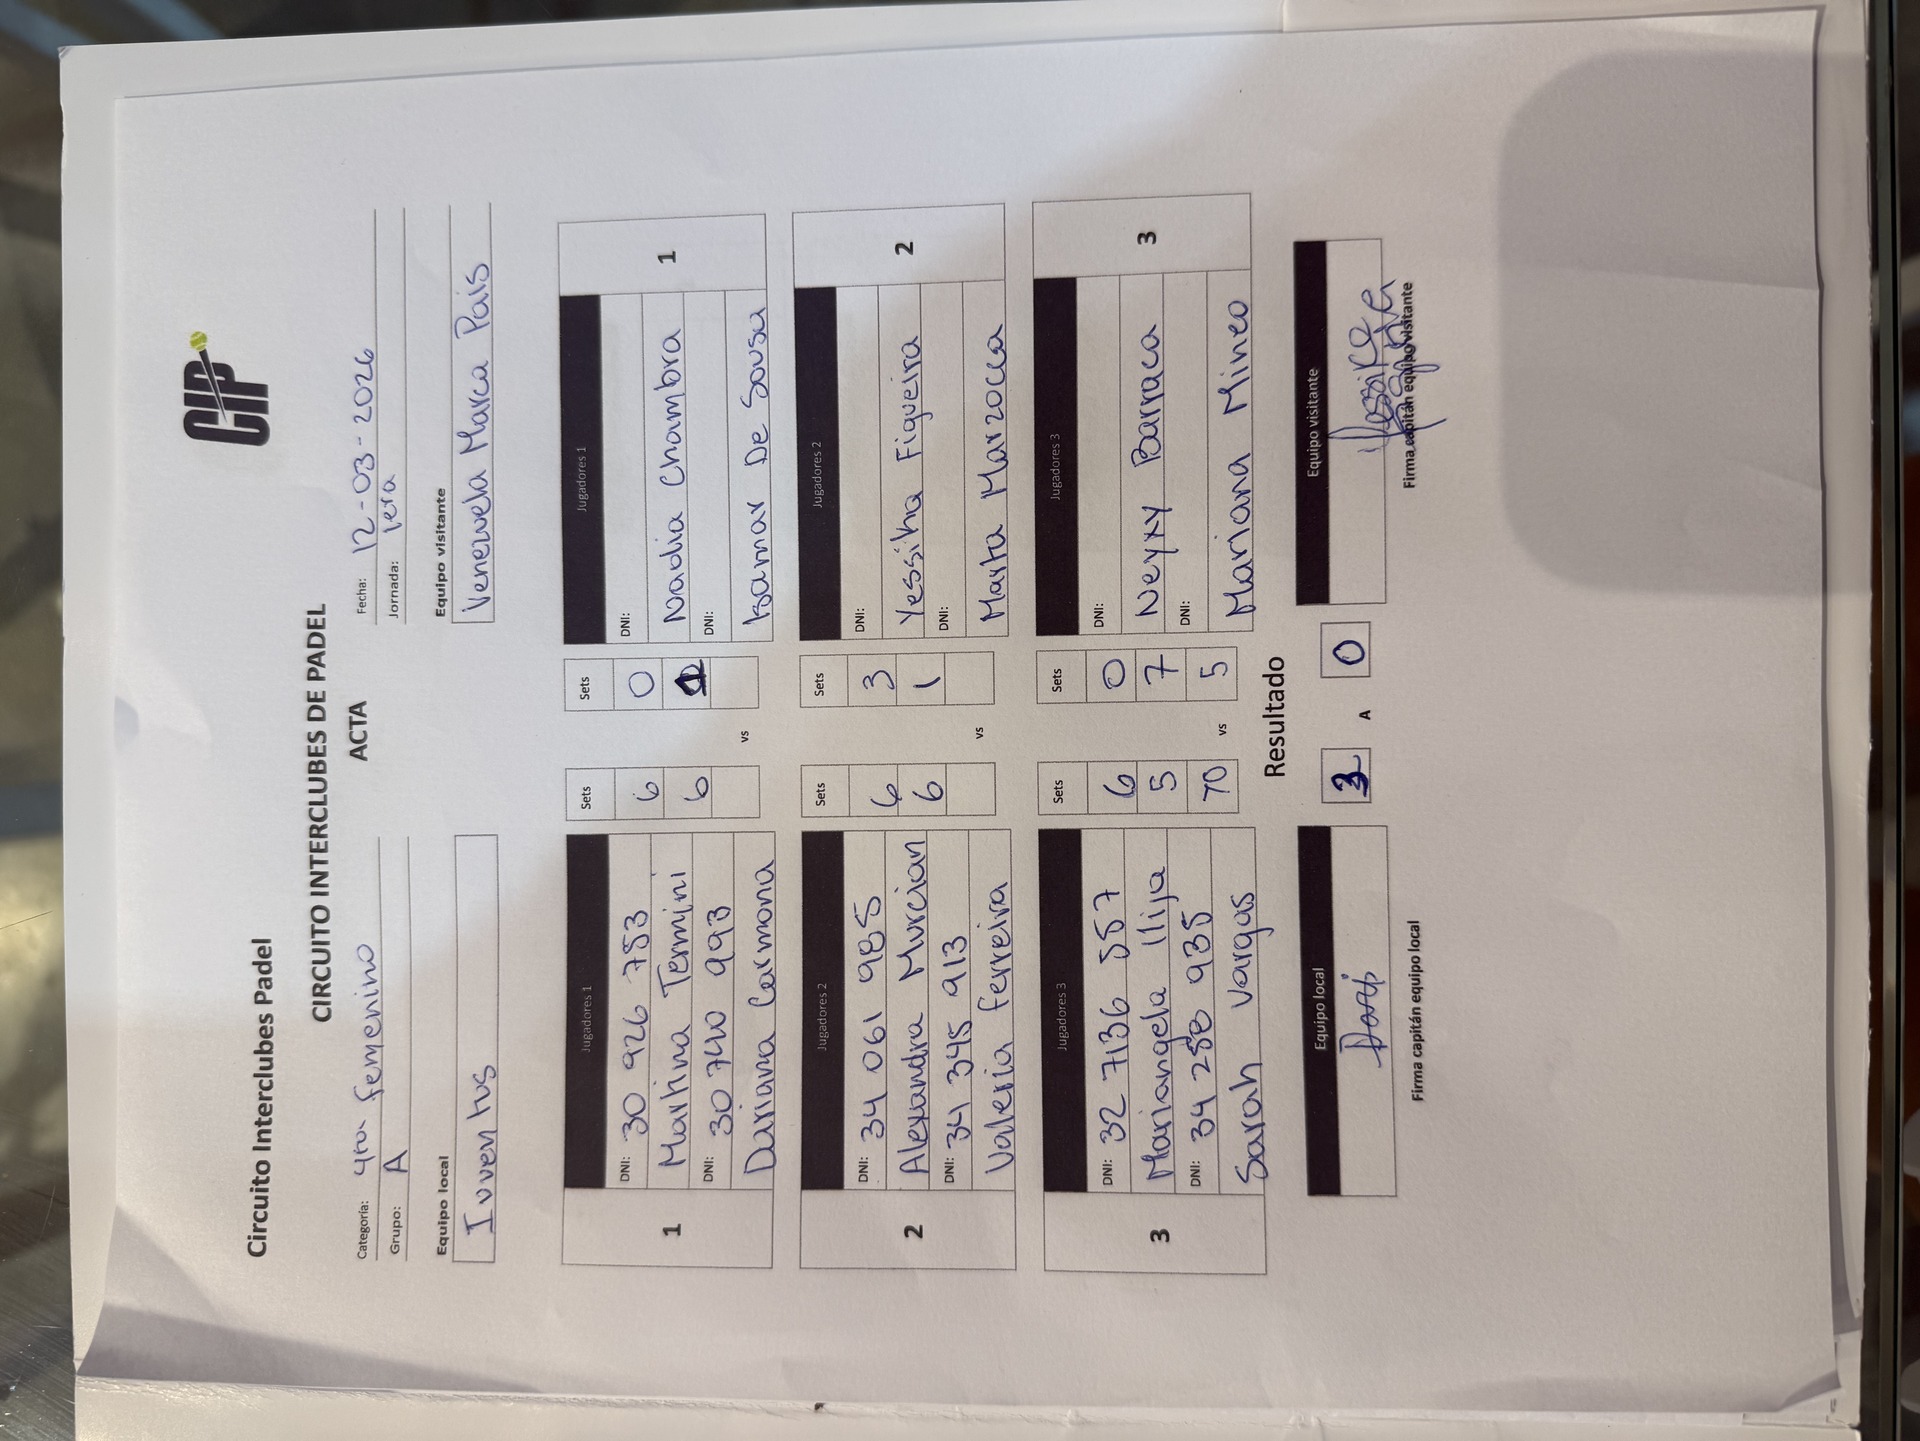 Circuito Interclubes Padel
CIP
CIRCUITO INTERCLUBES DE PADEL
ACTA
Categoría: 4ta femenino
Fecha: 12-03-2026
Grupo: A
Jornada: 1era
Equipo local
Equipo visitante
Iuventus
Venezuela Marca Pais
Jugadores 1 Sets Sets Jugadores 1
1
DNI: 30 926 753 6 0 DNI:
Martina Termini 6 Nadia Chambra
DNI: 30 740 993 DNI:
Dariana Carmona vs Isamar De Sousa
1
Jugadores 2 Sets Sets Jugadores 2
2
DNI: 34 061 985 6 3 DNI:
Alexandra Murcian 6 1 Yessika Figueira
DNI: 341 345 913 DNI:
Valeria ferreira vs Marta Marzocca
2
Jugadores 3 Sets Sets Jugadores 3
3
DNI: 32 7136 557 6 0 DNI:
Mariangela Ilija 5 7 Neyxy Barraca
DNI: 34 258 935 10 5 DNI:
Sarah Vargas vs Mariana Mineo
3
Resultado
Equipo local 3 A 0 Equipo visitante
Firma capitán equipo local
Firma capitán equipo visitante